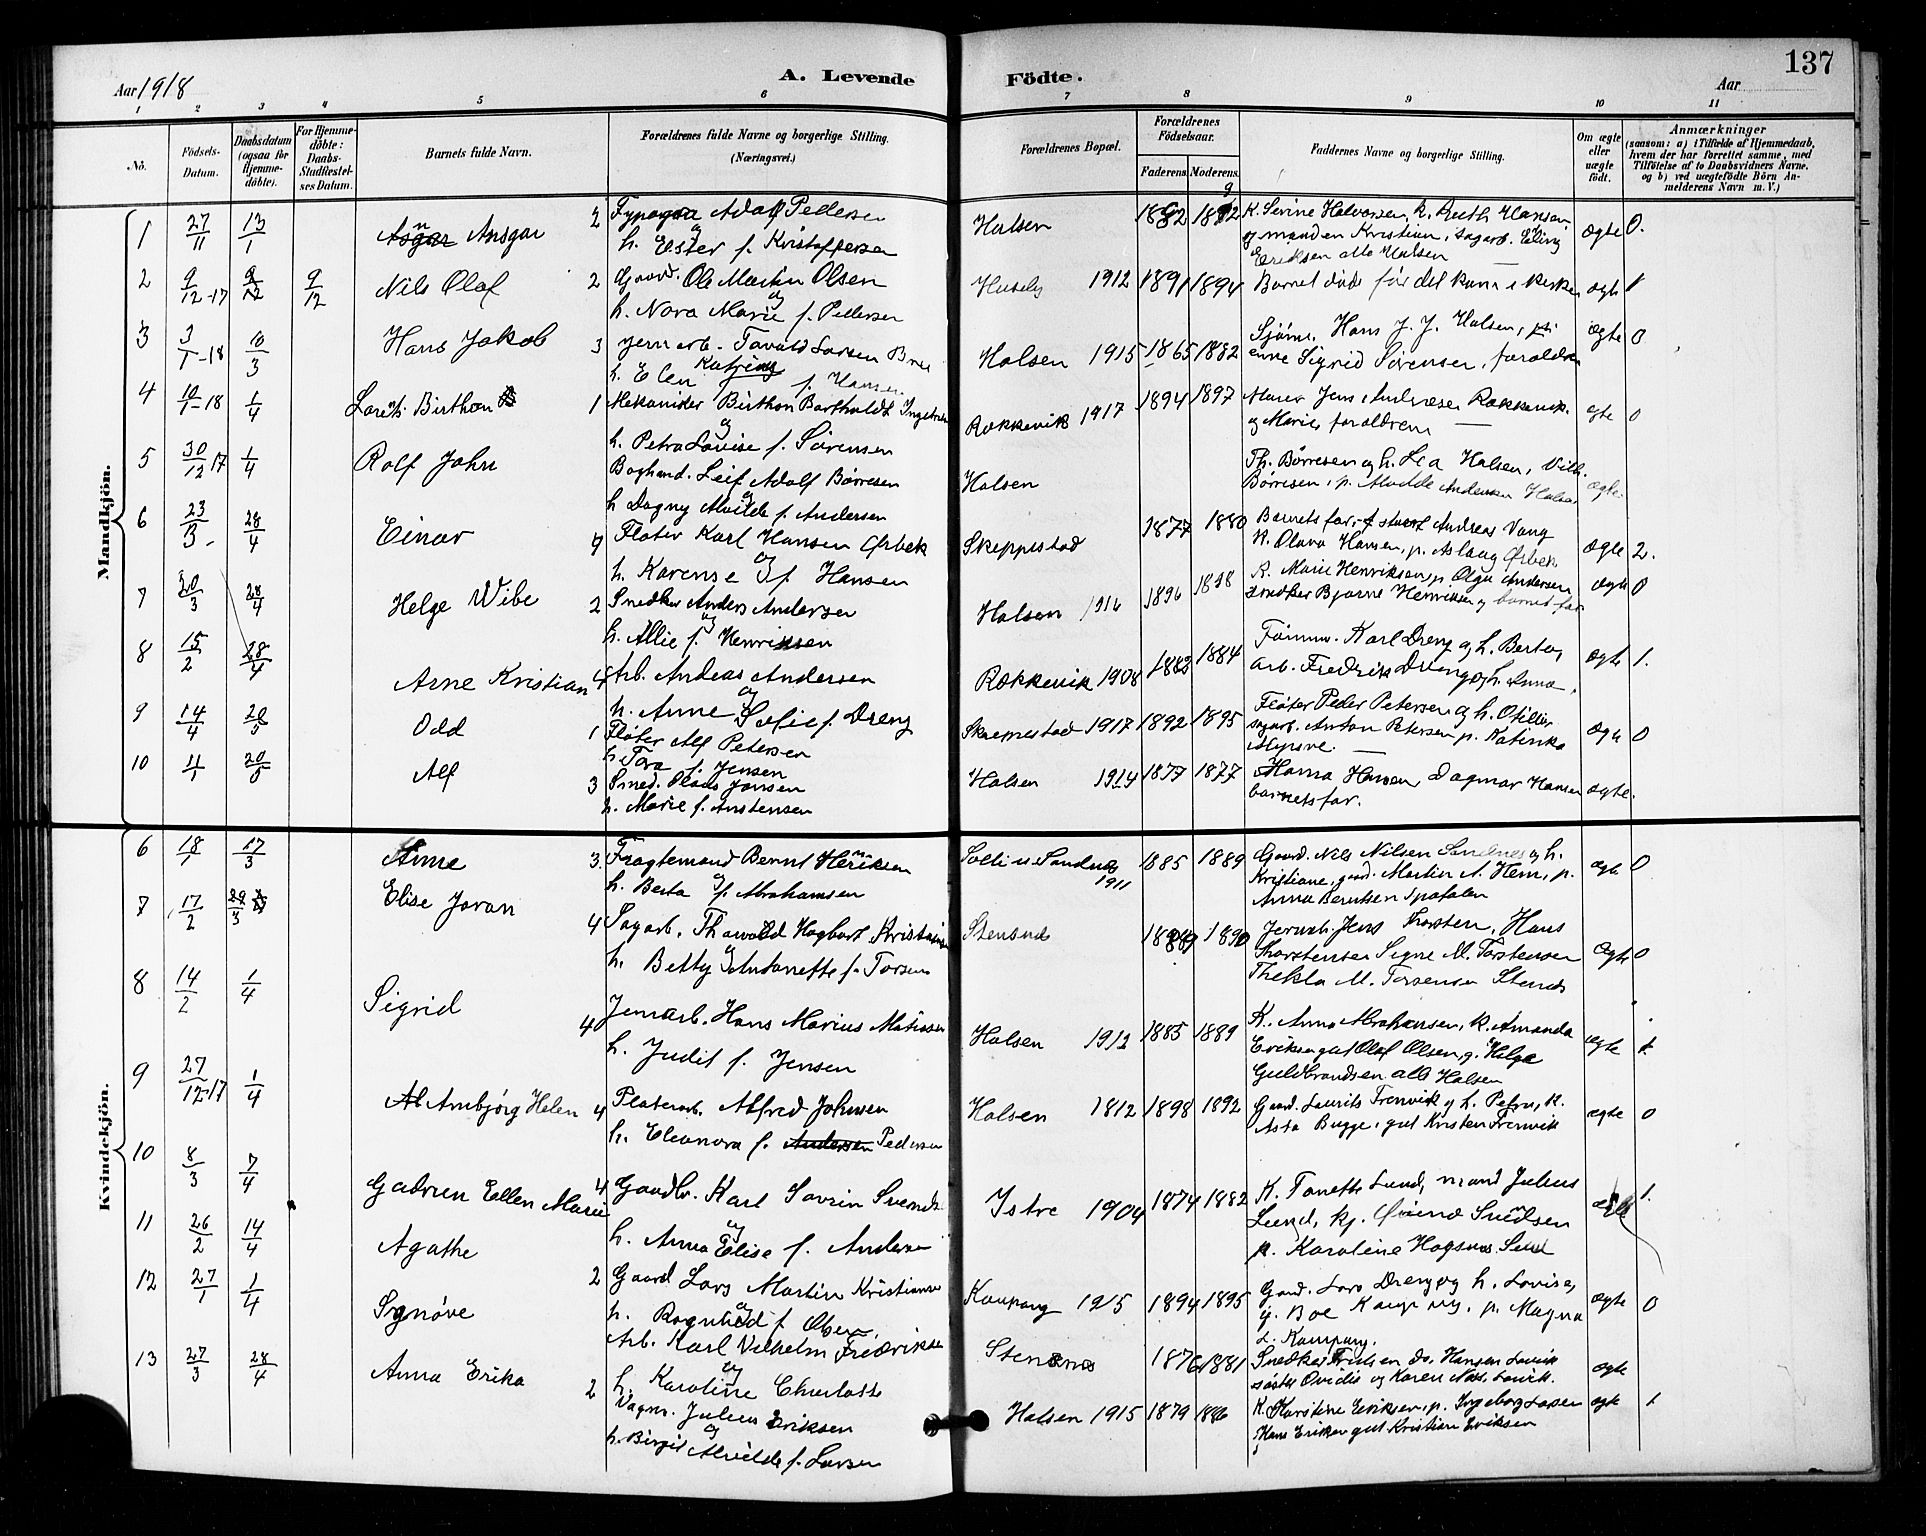 137
Aar 1918
A. Levende
Födte.
Aar
1 2 3 4 5 6 7 8 9 10 11
No.
Födsels-Datum.
Daabsdatum (ogsaa for Hjemme-döbte).
For Hjemme-döbte: Daabs-Stadfæstel-ses Datum.
Barnets fulde Navn.
Forældrenes fulde Navne og borgerlige Stilling. (Næringsvei.)
Forældrenes Bopæl.
Forældrenes Födselsaar.
Faderens. Moderens.
Faddernes Navne og borgerlige Stilling.
Om ægte eller uægte født.
Anmærkninger
(saasom: a) i Tilfælde af Hjemmedaab, hvem der har forrettet samme, med Tilföielse af to Daabsvidners Navne, og b) ved uægtefödte Börn An-melderens Navn m. V.)
Mandkjön.
1 27/11 13/1 Ansgar 2 Adolf Pedersen
h. Ester f. Kristoffersen
Halsen 1892 K. Sevine Halvorsen, k. Ruth Hansen
Eriksen alle Halsen ægte 0.
2 9/12-17 9/12 9/12 Nils Olaf 2 Gaard. Ole Martin Olsen
og
h. Nora Marie f. Pedersen
Huseby 1912 1891 1894 Barnet døde før det kom i kirken ægte 1
3 3/1-18 10/3 Hans Jakob 3 Jernarb. Larsen
h. Elen Katrine f. Hansen
Halsen 1915 1865 1882 Sjøm. Hans J. J. Halsen,
Sigrid Sørensen, forældrene ægte 0
4 10/1-18 1/4 Birthon 1 Mekaniker Birthon Bartholdt
og
h. Petra Lovise f. Sørensen
Rækkevik 1917 1894 1897 Murer Jens Andresen Rækkevik
og Marie, forældrene ægte 0
5 30/12 17 1/4 Rolf John
Boghand. Leif Adolf Børresen
og
h Dagny Alvilde f. Andersen
Halsen
Th. Børresen og h. Lea Halsen, Vilh.
Børresen, p. Alvilde Andersen Halsen ægte.
6 23/3 28/4 Einar 7 Fløter Karl Hansen Ørbek
og
h. Karense f. Hansen
Skeppestad 1877 1880 Barnets far, Andreas Vang
K. Olava Hansen, p. Aslaug Ørbek ægte 2.
7 20/3 28/4 Helge Wibe 2 Snedker Anders Andersen
og
h. Allie f. Henriksen
Halsen 1916 1896 1898 K. Marie Henriksen, p Olga Andersen
snedker Bjarne Henriksen og barnets far ægte 0
8 15/2 28/4 Arne Kristian 4 Arb. Andreas Andersen
og
h. Anne Sofie f. Dreng
Rækkevik 1908 1883 1884 Karl Dreng og h. Berta,
arb. Fredrik Dreng og h. Anna. ægte 1.
9 14/4 20/5 Odd 1 Fløter Alf Petersen
h. Tora f. Jensen
1917 1892 1895 Fløter Peder Petersen og h. Otillie
sagarb. Anton Petersen p. Katinka
ægte 0
10 4/1 20/5 Alf 3 Smed. Olaus Jansen
h. Marie f. Anstensen
Halsen 1914 1877 1877 Hanna Hansen, Dagmar Hansen
barnets far. ægte.
Kvindekjön.
6 18/1 17/3 Anne 3. Fragtemand Bernt Henriksen
og
h. Berta f. Abrahamsen
1911 1885 1889 Gaard. Nils Nilsen Sandnes og h.
Kristiane, gaard. Martin A. Hem, p.
Anna Berntsen ægte 0
7 17/2 Elise Joran 4 Sagarb. Thorvald Hagbart Kristiansen
og
h. Betty Antonette f. Torsen
Stensnes 1889 1890 Jernarb. Jens Torsten, Hans
Thorstensen Signe M. Torstensen
Thekla M. Torsensen Stensnes ægte 0
8 14/2 1/4 Sigrid 4 Jernarb. Hans Marius Matisen
h. Judit f. Jensen
Halsen 1912 1885 1889 K. Anna Abrahamsen, k. Amanda
Eriksen gut Olaf Olsen, g. Helge
Guldbrandsen alle Halsen ægte 1
9 27/12-17 1/4 Ambjörg Helen 4 Alfred Johnsen
h. Eleonora f. Andersen Pedersen
Halsen 1812 1898 1892 Gaard. Laurits Trenvik og h. Petra, k.
Asta Bugge, gut Kristen Trenvik ægte 0
10 8/3 7/4 Ellen Marie 4. Gaardbr. Karl Sevrin
og
h. Anna Elise f. Andersen
Istre 1904 1874 1882 K. Tanette Lund, mand Julius
Lund,
p. Karoline ægte 1.
11 26/2 14/4 Agathe 2 Gaard Lars Martin Kristiansen
og
h. Ragnhild f. Olsen.
Kaupang 1915 1894 1895 Gaard. Lars Dreng og h. Lovise,
g. Boe Kaupang, p. Magna
L. Kaupang. ægte 0
12 27/1 1/4 Synøve
Arb. Karl Vilhelm Fredriksen
og
h. Karoline Charlotte
Stensnes 1876 1881 Snedker Nilsen do. Hansen Larvik
søster Ovidie og Karen Næss, Larvik. ægte
13 27/3 28/4 Anna Erika 2 Vagm. Julius Eriksen
og
h. Birgit Alvilde f. Larsen
Halsen 1915 1879 1886 K. Karstine Eriksen, p. Ingeborg Larsen
Hans Eriksen gut Kristian Eriksen ægte 1